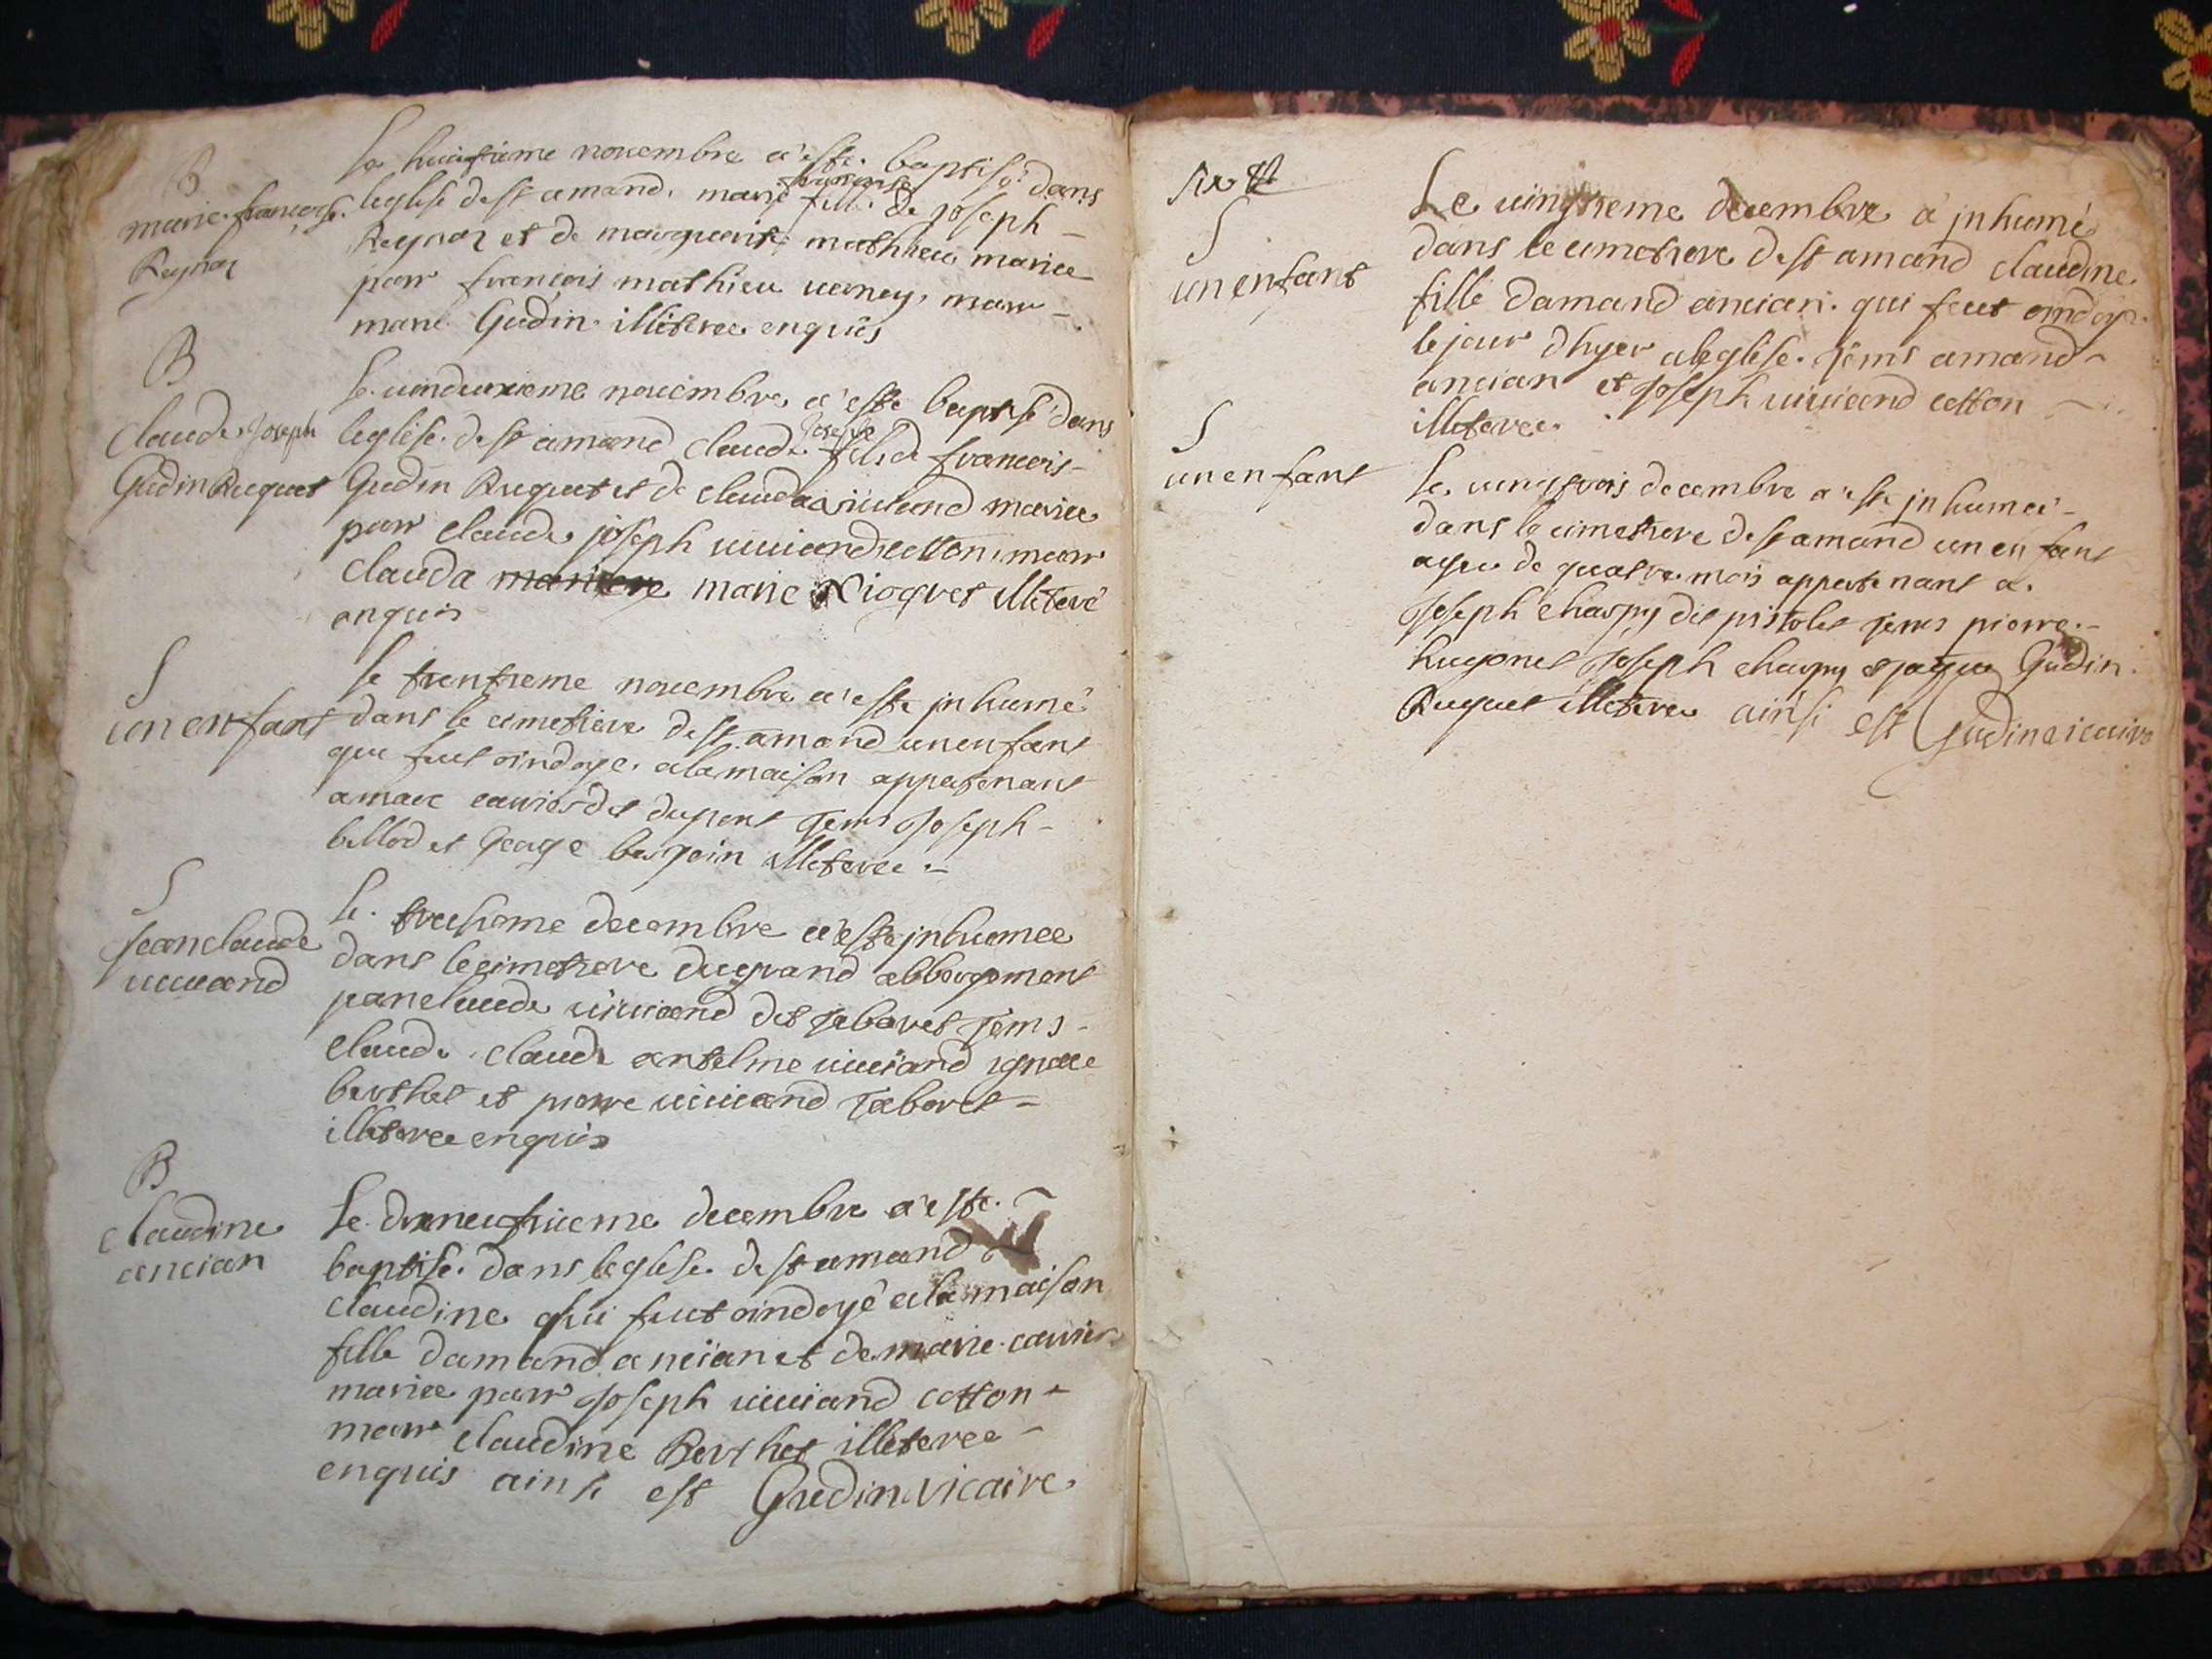 B
marie françoise
Reynoz
Le huictieme nouembre a'este baptisé dans
leglise de st amand marie françoise fille de joseph
Reynoz et de marguerite mathieu mariee
parr françois mathieu uerney marr
marie Gudin illiteree enquis
B
Claude Joseph
Gudin Ruquet
Le uinduxieme nouembre a'este baptisé dans
leglise de st amand claude joseph fils de françois
Gudin Ruquet et de clauda uiuiand mariee
parr claude joseph uiuiand cotton marr
clauda mariere marie Niogret illeteré
enquis
S
un enfant
le trentieme nouembre a'este jnhumé
dans le cimetiere de st amand un enfant
que fut oindoye a la maison appartenant
a marc cauier dit dupont tems joseph
billod et George burgoin illeteree
S
jean claude
uiuiand
le treshieme decembre a'este jnhumee
dans le cimetiere du grand abbergement
jean claude uiuiand dit taboret tems
claude claude antelme uiuiand ignace
berthet et pierre uiuiand taboret
illeteree enquis
B
claudine
ancian
Le dixneufuieme decembre a'este
baptise dans leglise de st amand
claudine qui fut oindoyé a la maison
fille damand ancian et de marie cauier
mariee parr joseph uiuiand cotton
marr claudine Berthet illeteree
enquis ainsi est Gudin vicaire
S
un enfant
Le uingtieme decembre a jnhumé
dans le cimetiere de st amand claudine
fille damand ancian qui feut oindoye
le jour dhyer a leglise tems amand
ancian et joseph uiuiand cotton
illeteree
S
un enfant
le uingtrois decembre a'este jnhumeé
dans le cimetiere de st amand un enfant
agee de quatre mois appartenant a
joseph charpy dit pistolet tems pierre
hugonet joseph charpy et jaque Gudin
Ruquet illeteree ainsi est Gudin vicaire